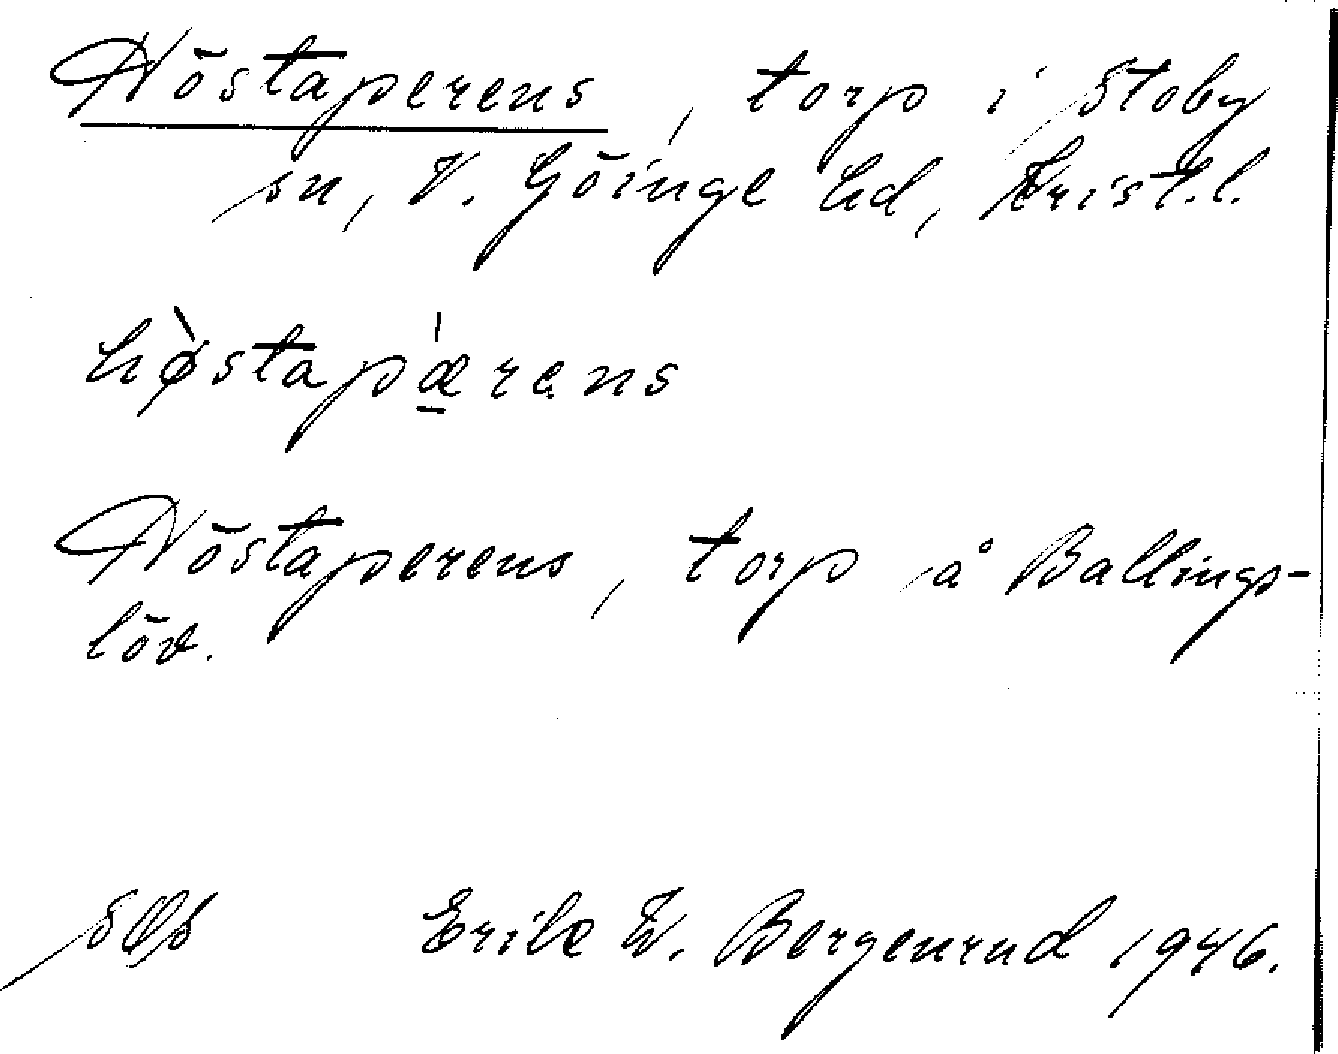 Höstaperens, torp i Stoby
sn, V. Göinge hd, Krist.l.
hø̀stapǽrens
Höstaperens, torp å Ballings-
löv.
Erik W. Bergenrud 1946.